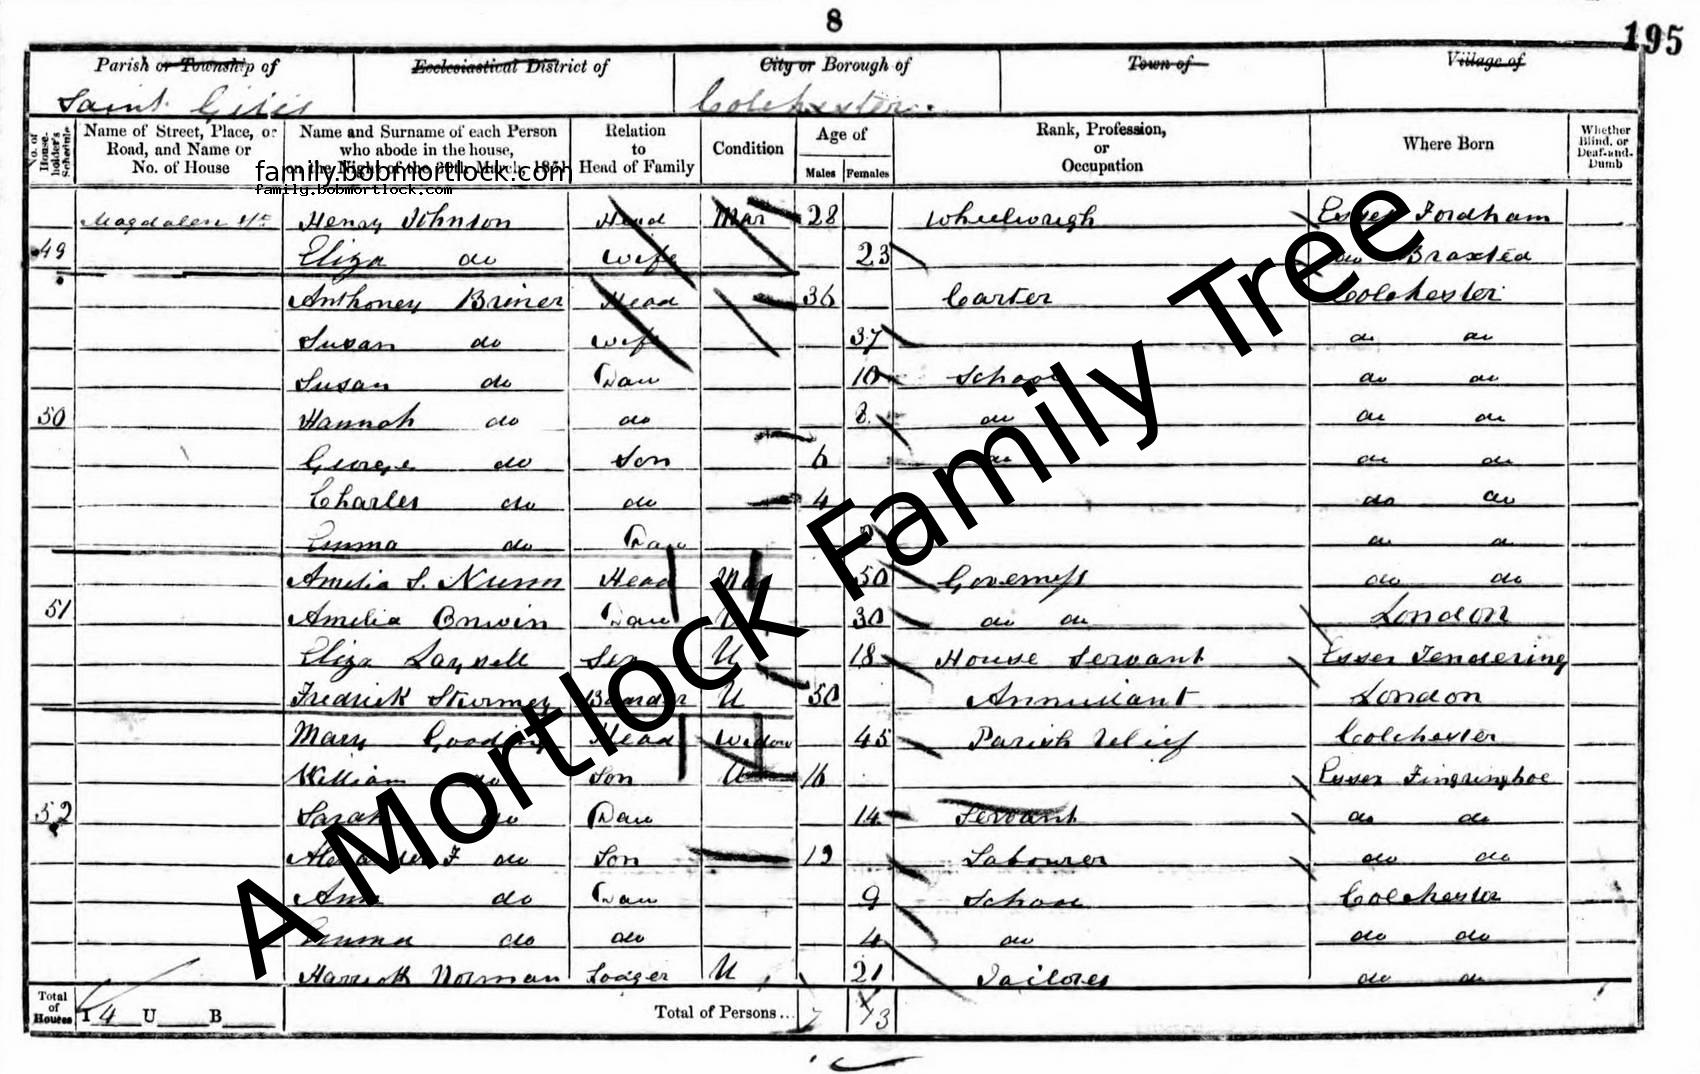 8
195
Parish or Township of Ecclesiastical District of City or Borough of Town of Village of
Saint Giles Colchester
No. of House-holder's Schedule Name of Street, Place, or Road, and Name or No. of House Name and Surname of each Person who abode in the house, on the Night of the 30th March, 1851 Relation to Head of Family Condition Age of Males Females Rank, Profession, or Occupation Where Born Whether Blind, or Deaf-and-Dumb
family.bobmortlock.com
family.bobmortlock.com
Magdalen St Henry Johnson Head Mar 28 Wheelwrigh Essex Fordham
49 Eliza do Wife 23 do Braxted
Anthoney Briner Head 36 Carter Colchester
Susan do Wife 37 do do
Susan do Dau 10 School do do
50 Hannah do do 8 do do do
George do Son 6 do do do
Charles do do 4 do do
Emma do Dau do do
Amelia S. Nunn Head 50 Governess do do
51 Amelia Do 30 do do London
Eliza Laysell Ser U 18 House Servant Essex Tendering
Fredrick Sturmey Boarder U 50 Annuitant London
Mary Gooding Head Widow 45 Parish Relief Colchester
William do Son U 16 Essex Fingringhoe
52 Sarah do Dau 14 Servant do do
Alexander F do Son 12 Labourer do do
Ann do Dau 9 School Colchester
Emma do do 4 do do do
Harriott Norman Lodger U 21 Tailores do do
Total of Houses I 4 U B Total of Persons... 7 13
A Mortlock Family Tree